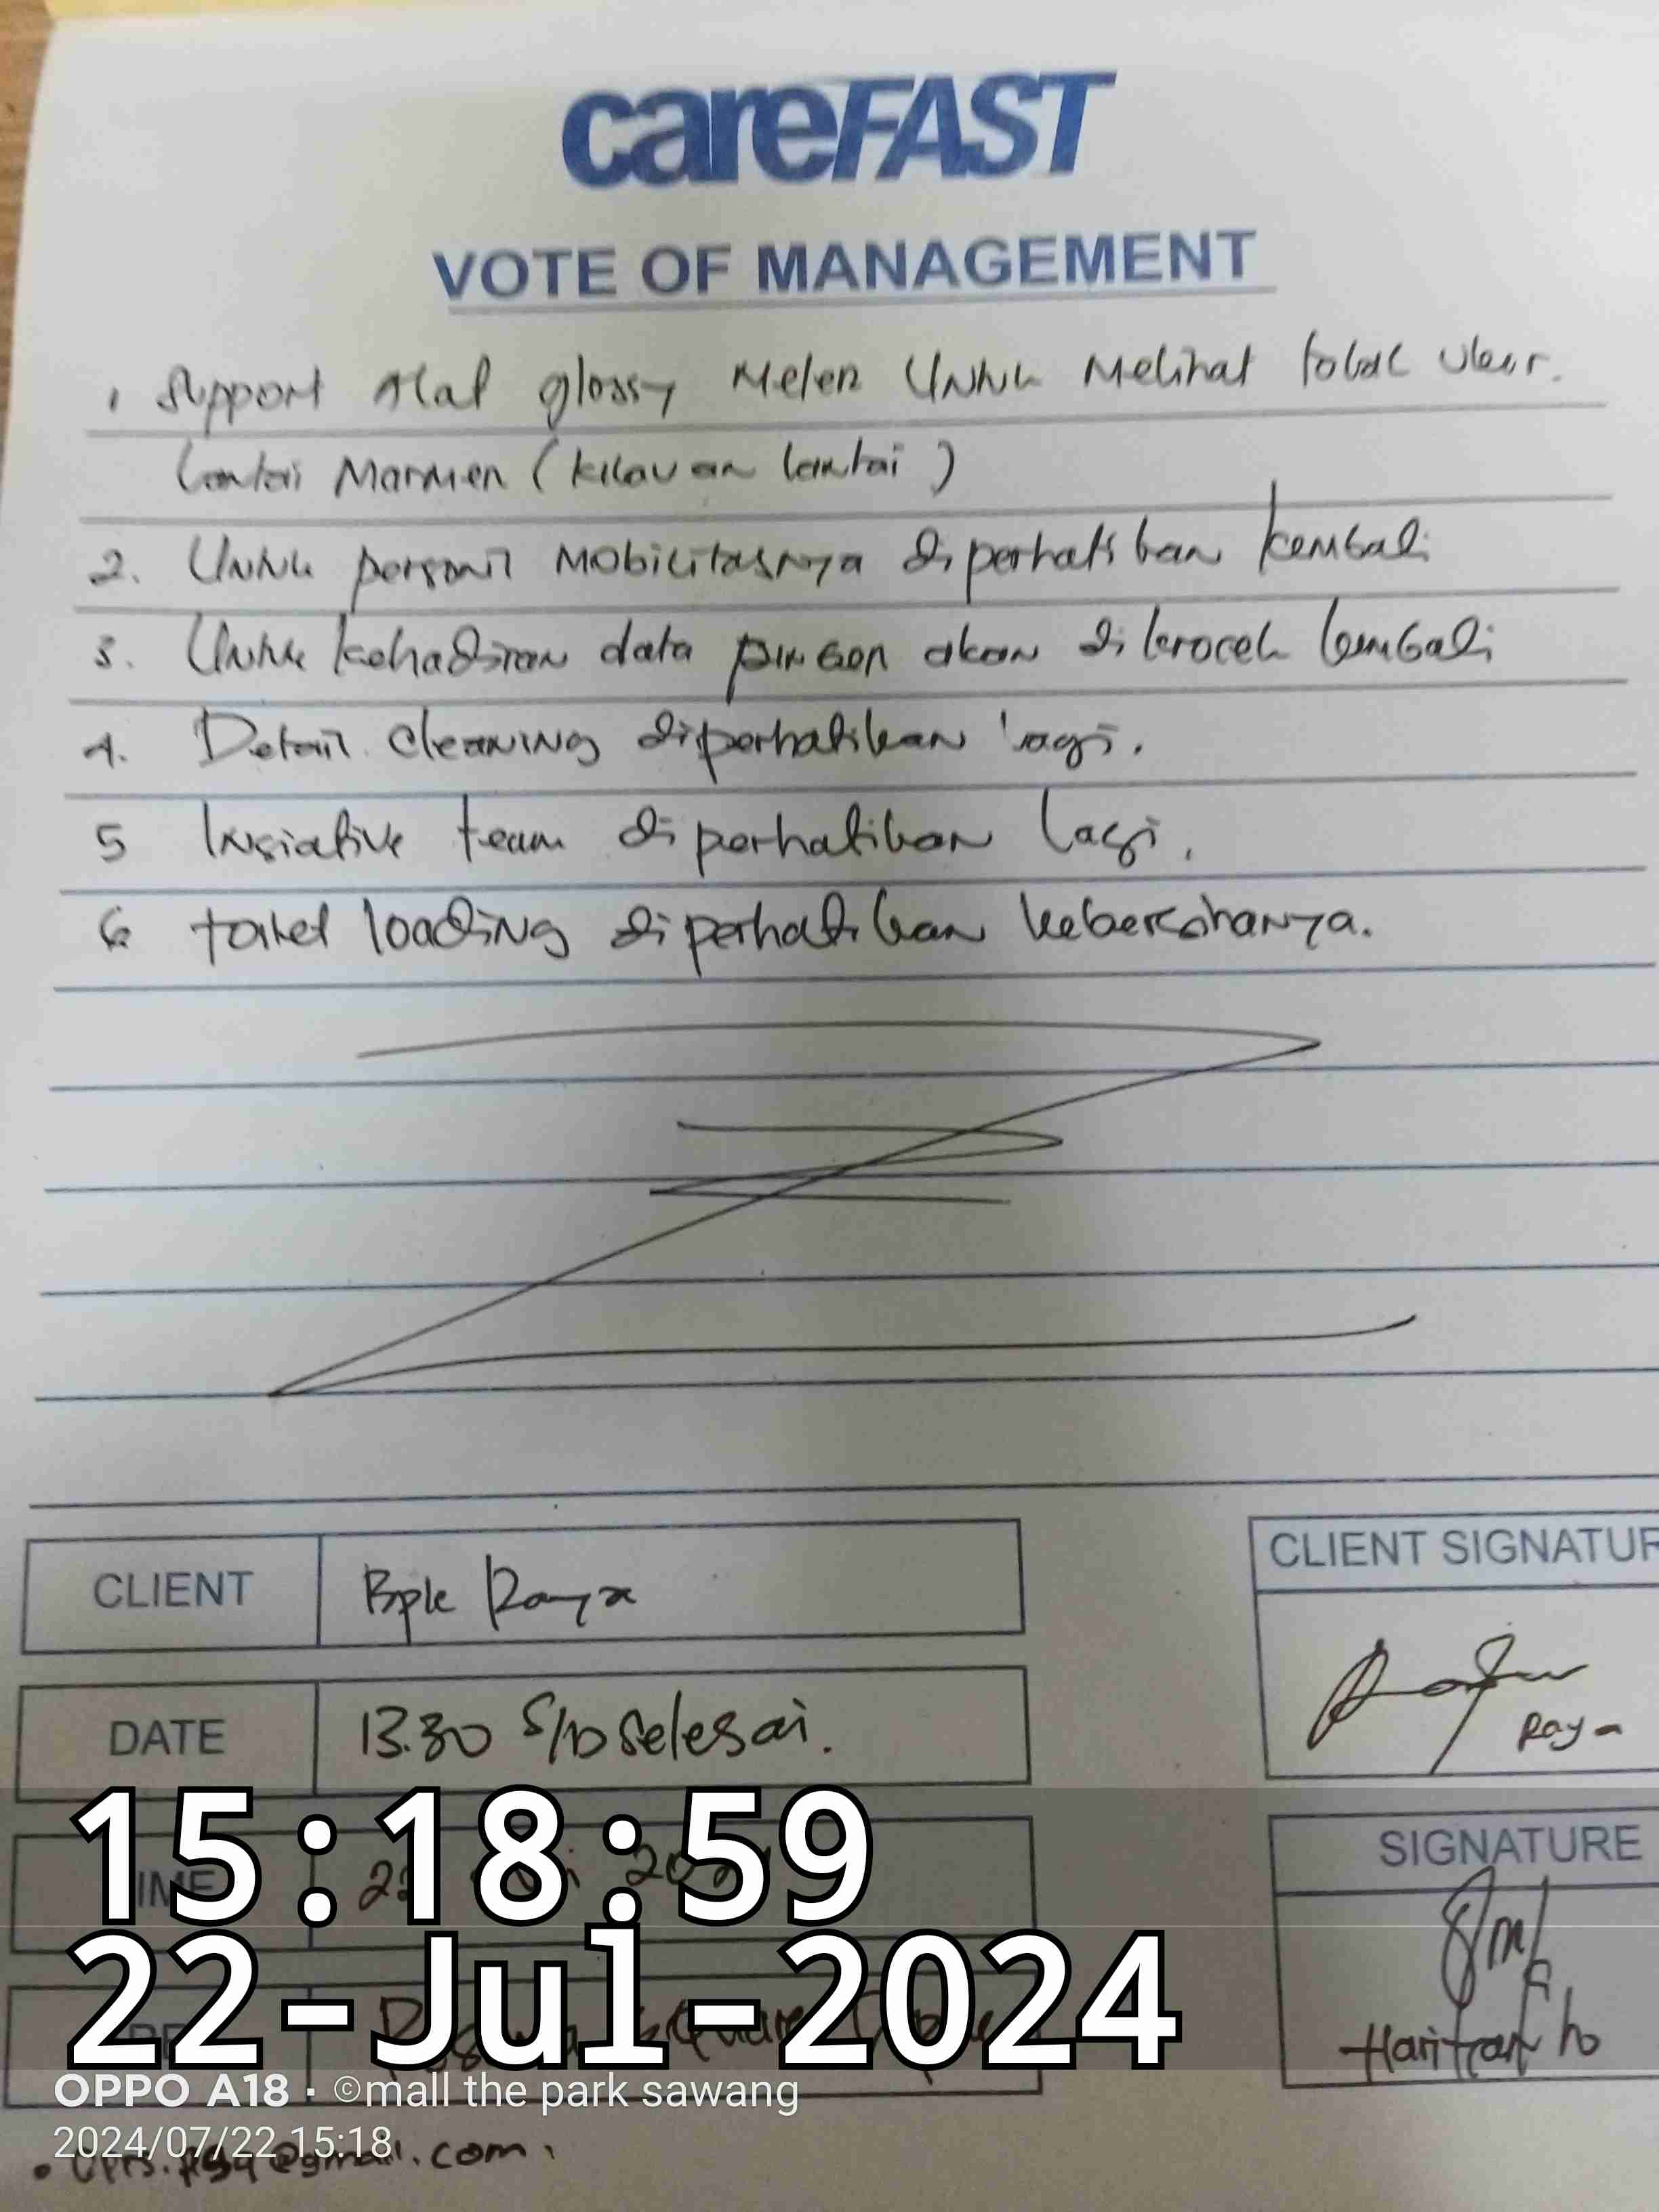 careFAST
VOTE OF MANAGEMENT
1 Support Alat glossy Meter Untuk Melihat tolak Ukur.
Lantai Marmer (kilauan lantai)
2. Untuk personil Mobilitasnya diperhatikan kembali
3. Untuk kehadiran data akan di kroscek kembali
4. Detail cleaning diperhatikan lagi.
5 Insiative team diperhatikan lagi.
6 toilet loading diperhatikan kebersihanya.
CLIENT Bpk Raya
CLIENT SIGNATUR
Raya
DATE 13.30 S/D Selesai.
SIGNATURE
Haritanto
15:18:59
22-Jul-2024
OPPO A18 · ©mall the park sawang
2024/07/22 15:18
@gmail.com